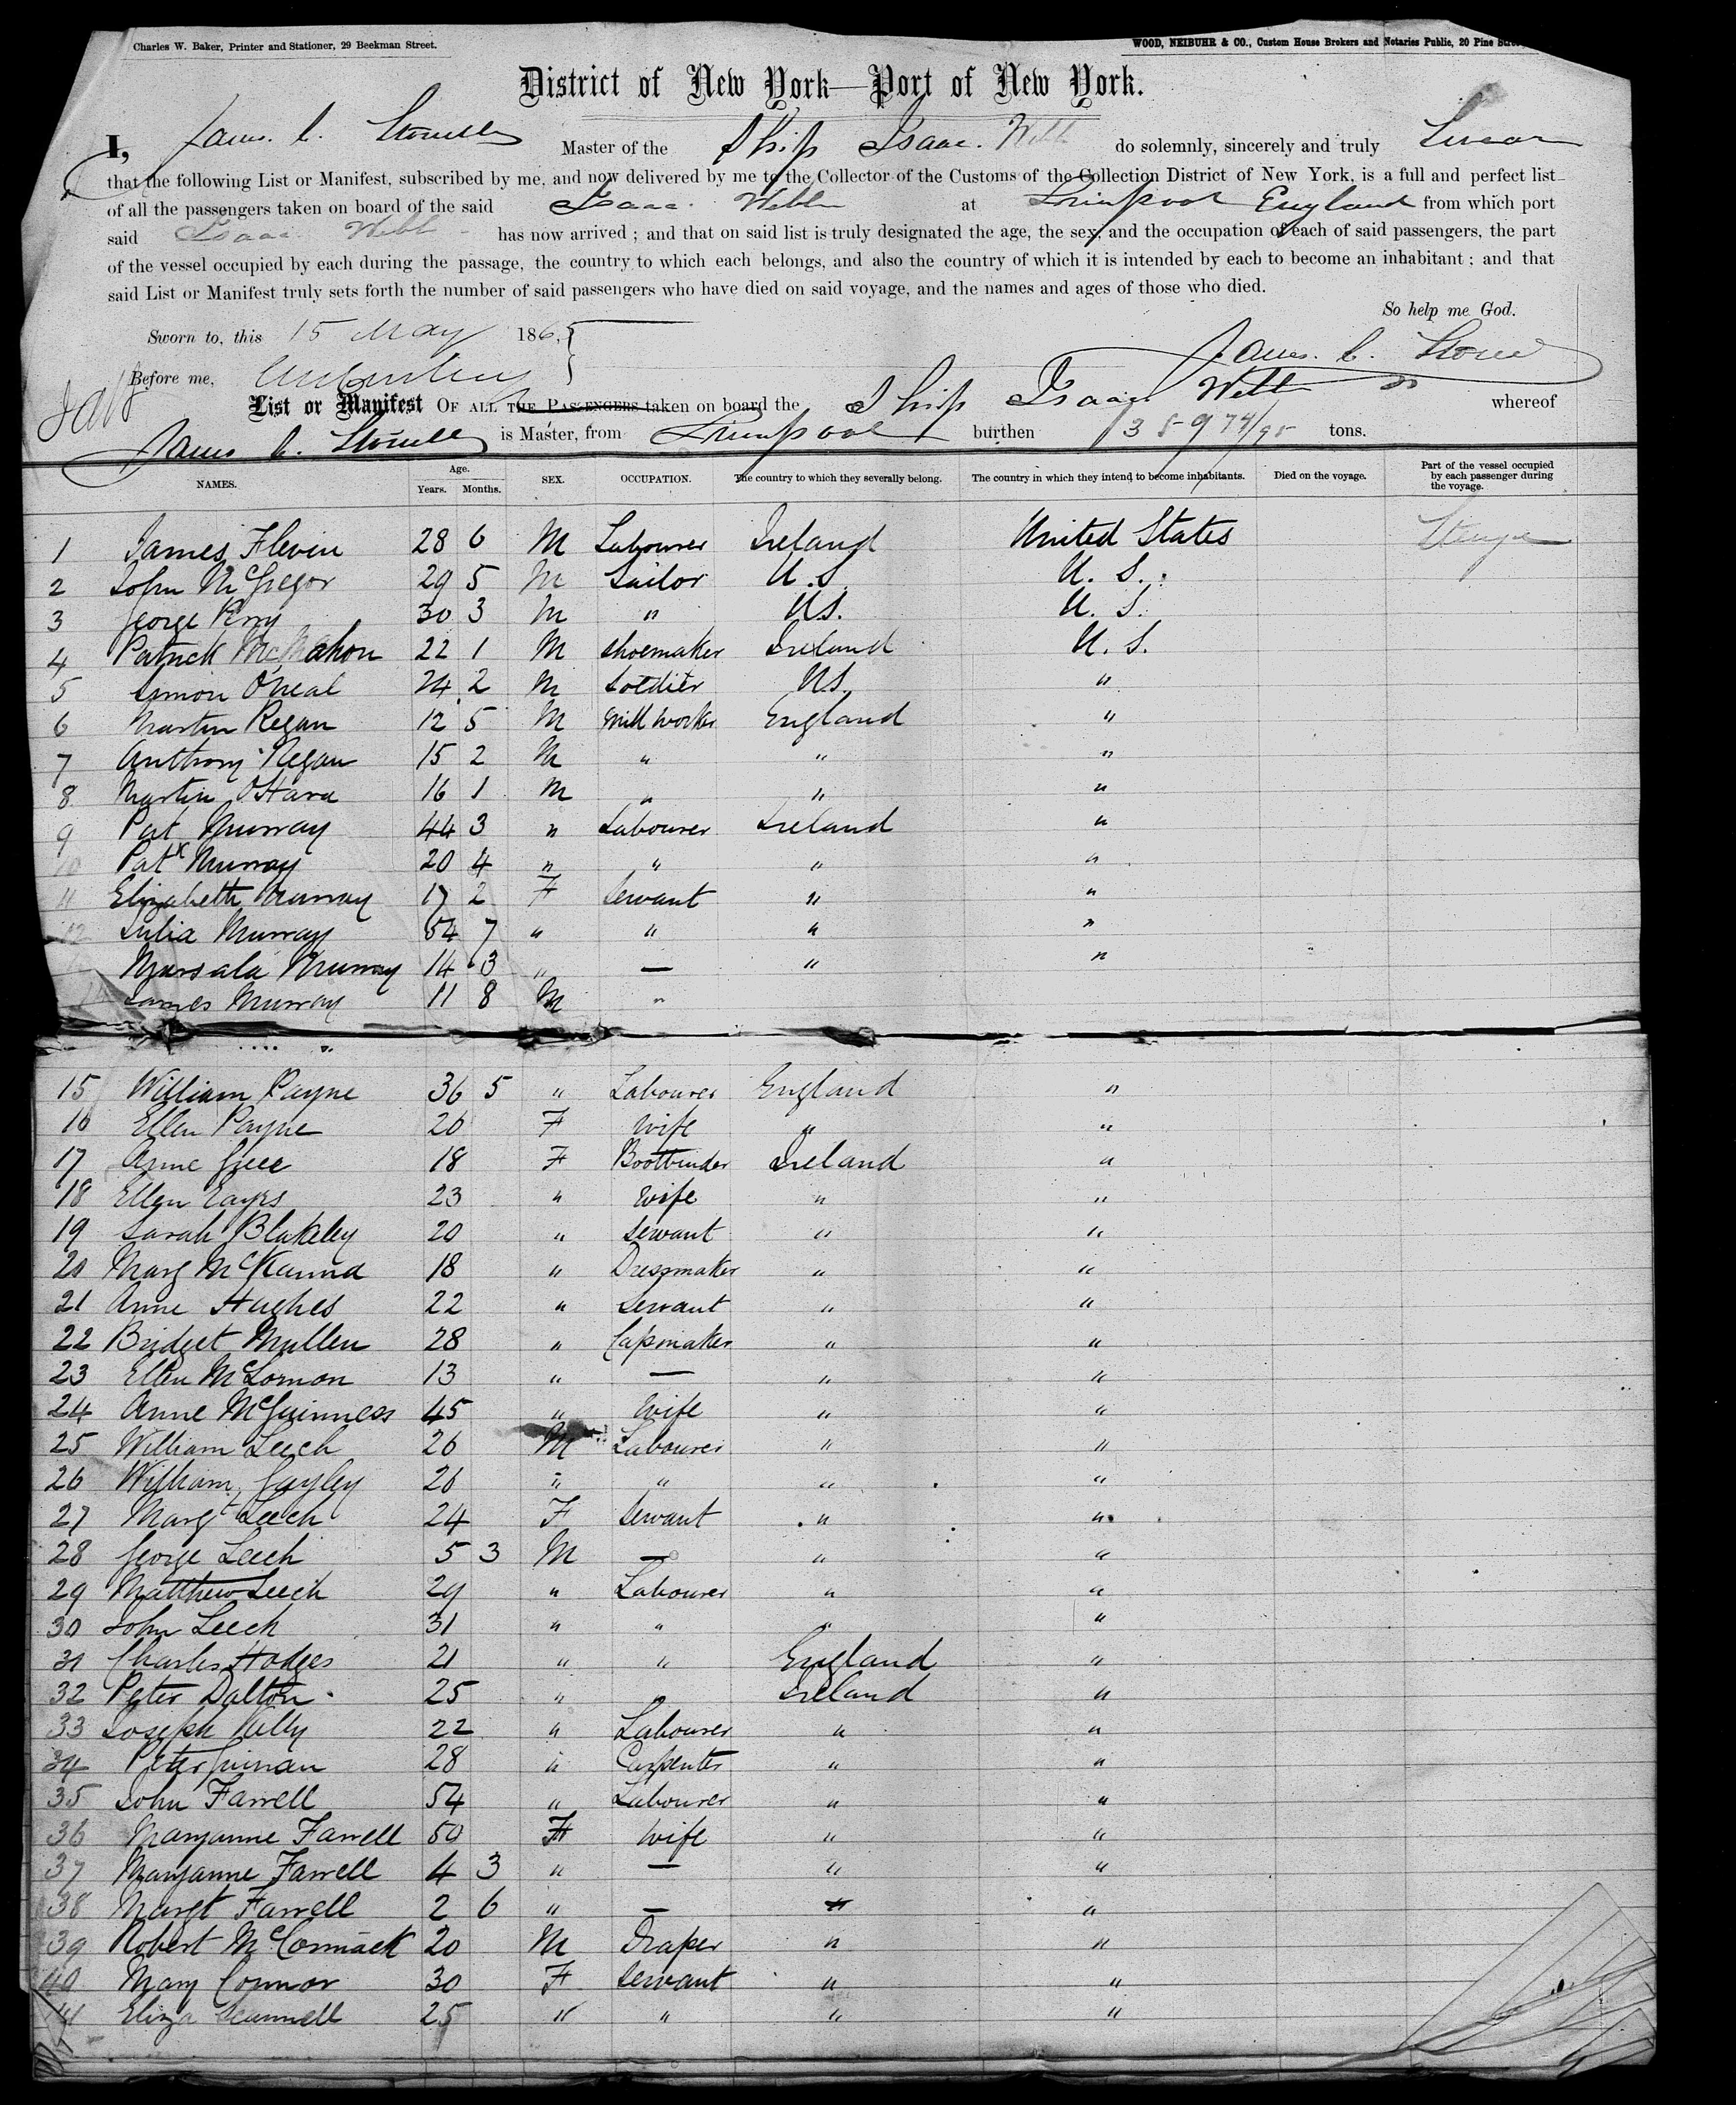 Charles W. Baker, Printer and Stationer, 29 Beekman Street.
WOOD, NEIBUHR & CO., Custom House Brokers and Notaries Public, 20 Pine
District of New York—Port of New York.
I, James C. Master of the Ship Isaac Webb do solemnly, sincerely and truly Swear
that the following List or Manifest, subscribed by me, and now delivered by me to the Collector of the Customs of the Collection District of New York, is a full and perfect list
of all the passengers taken on board of the said Isaac Webb at Liverpool England from which port
said Isaac Webb has now arrived ; and that on said list is truly designated the age, the sex, and the occupation of each of said passengers, the part
of the vessel occupied by each during the passage, the country to which each belongs, and also the country of which it is intended by each to become an inhabitant ; and that
said List or Manifest truly sets forth the number of said passengers who have died on said voyage, and the names and ages of those who died.
So help me God.
Sworn to, this 15 May 186
James C.
Before me,
List or Manifest OF ALL THE PASSENGERS taken on board the Ship Isaac Webb whereof
James C. is Master, from Liverpool burthen 1359 74/95 tons.
NAMES. Age. Years. Months. SEX. OCCUPATION. The country to which they severally belong. The country in which they intend to become inhabitants. Died on the voyage. Part of the vessel occupied by each passenger during the voyage.
1 James Flevin 28 6 M Labourer Ireland United States Steerage
2 John McGregor 29 5 M Sailor U.S. U. S.
3 George Perry 30 3 M " U.S. U. S.
4 Patrick McMahon 22 1 M Shoemaker Ireland U. S.
5 Simon O'Neal 24 2 M Soldier U.S. "
6 Martin Regan 12 5 M Mill Worker England "
7 Anthony Regan 15 2 M " " "
8 Martin O'Hara 16 1 M " " "
9 Pat Murray 44 3 " Labourer Ireland "
10 Patk Murray 20 4 " " " "
11 Elizabeth Murray 17 2 F Servant " "
12 Julia Murray 54 7 " " " "
Murray 14 3 " — " "
14 James Murray 11 8 M "
15 William Payne 36 5 " Labourer England "
16 Ellen Payne 26 F Wife " "
17 Anne Greer 18 F Bootbinder Ireland "
18 Ellen Eayrs 23 " Wife " "
19 Sarah Blakeley 20 " Servant " "
20 Marg McKanna 18 " Dressmaker " "
21 Anne Hughes 22 " Servant " "
22 Bridget Mullen 28 " Capmaker " "
23 Ellen McLornon 13 " — " "
24 Anne McGuinness 45 " Wife " "
25 William Leech 26 M Labourer " "
26 William Gayley 26 " " " "
27 Margt Leech 24 F Servant " "
28 George Leech 5 3 M — " "
29 Matthew Leech 29 " Labourer " "
30 John Leech 31 " " " "
31 Charles Hodges 21 " " England "
32 Peter Dalton 25 " " Ireland "
33 Joseph 22 " Labourer " "
34 Peter Guinan 28 " Carpenter " "
35 John Farrell 54 " Labourer " "
36 Maryanne Farrell 50 F Wife " "
37 Maryanne Farrell 4 3 " — " "
38 Margt Farrell 2 6 " — " "
39 Robert McCormack 20 M Draper " "
40 Mary Connor 30 F Servant " "
41 Eliza Scannell 25 " " " "